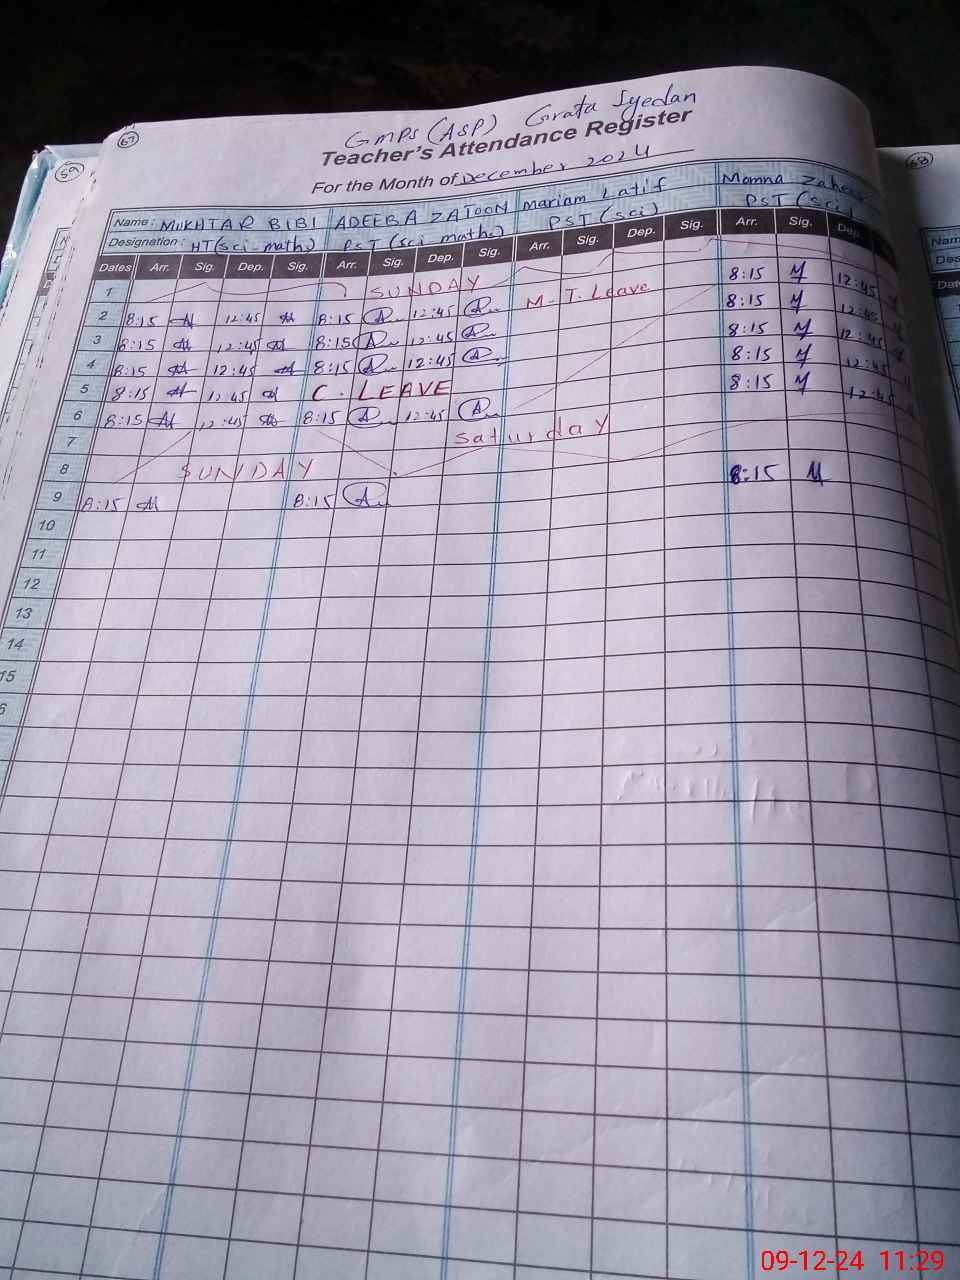 67
59
68
GMPS (ASP) Grata Syedan
Teacher's Attendance Register
For the Month of December 2024
Name: MUKHTAR BIBI ADEEBA ZATOON Mariam Latif Momna
Designation: HT(Sci-math) PST (Sci math) PST (Sci) PST (Sci)
Dates Arr. Sig. Dep. Sig. Arr. Sig. Dep. Sig. Arr. Sig. Dep. Sig. Arr. Sig. Dep.
1 SUNDAY
2 8:15 12:45 8:15 A 12:45 A M.T. Leave 8:15 M 12:45
3 8:15 12:45 8:15 A 12:45 A 8:15 M 12:45
4 8:15 12:45 8:15 A 12:45 A 8:15 M 12:45
5 8:15 12:45 C. LEAVE 8:15 M 12:45
6 8:15 12:45 8:15 A 12:45 A 8:15 M 12:45
7 Saturday
8 SUNDAY
9 8:15 8:15 A 8:15 M
10
11
12
13
14
15
6
09-12-24 11:29